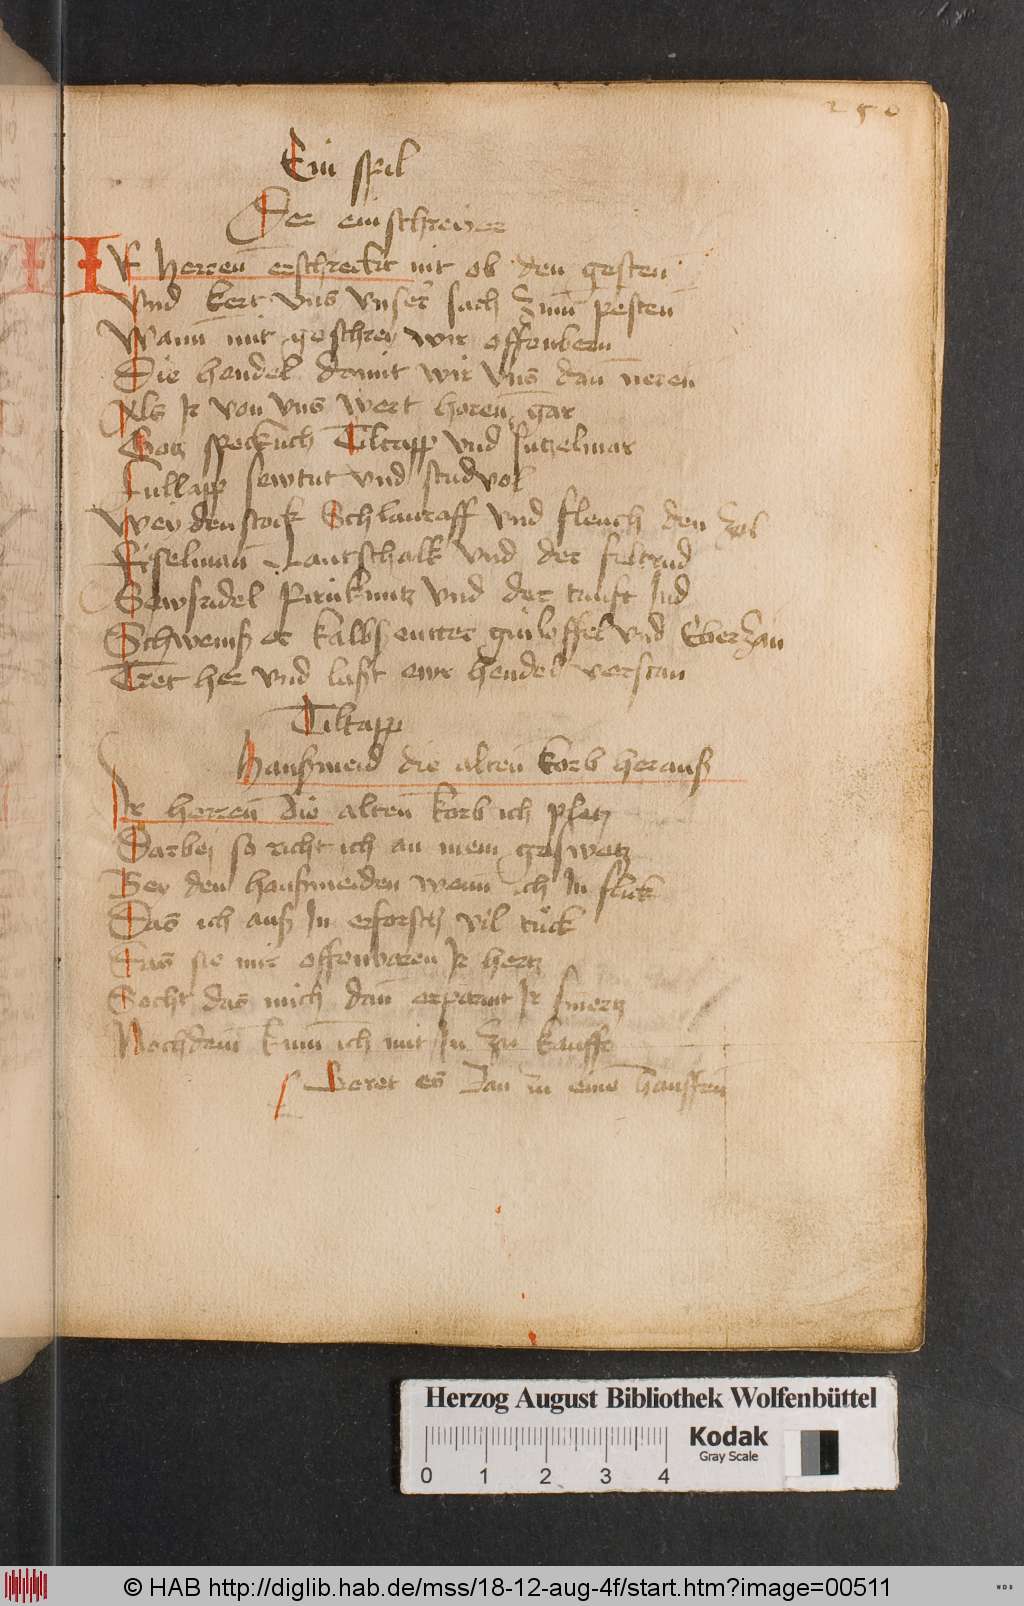 250
Ein spil
Der einschreier
IR herren erschreckt nit ob den gesten
Vnd kert vns vnser sach zum pesten
Wann mit geschrey wir offenbern
Die hendel damit wir vns dann neren
Als Ir von vns wert horen gar
Gotz Tiltapp vnd sutzelmar
Lullapp sewtut vnd studvol
Weydenstock Schlauraff vnd fleuch den zol
Eselman Lautschalk vnd der
Sewfridel vnd der tauft Jud
kalbseutter vnd Eberzan
Tret her vnd last ewr hendel verstan
Tiltapp
Hanßmeid die alten korb herauß
Ir herren die alten korb ich pletz
Darbej so richt ich an mein geswetz
Bey den haußmeiden wenn ich In flick
Das ich auß In erforsch vil tück
Das sie mir offenbaren Ir hertz
Secht das mich dann erparmt Ir smertz
Nochdem kumm ich mit In zu kauffe
es in eine hauffen
Herzog August Bibliothek Wolfenbüttel
Kodak
Gray Scale
0 1 2 3 4
© HAB http://diglib.hab.de/mss/18-12-aug-4f/start.htm?image=00511